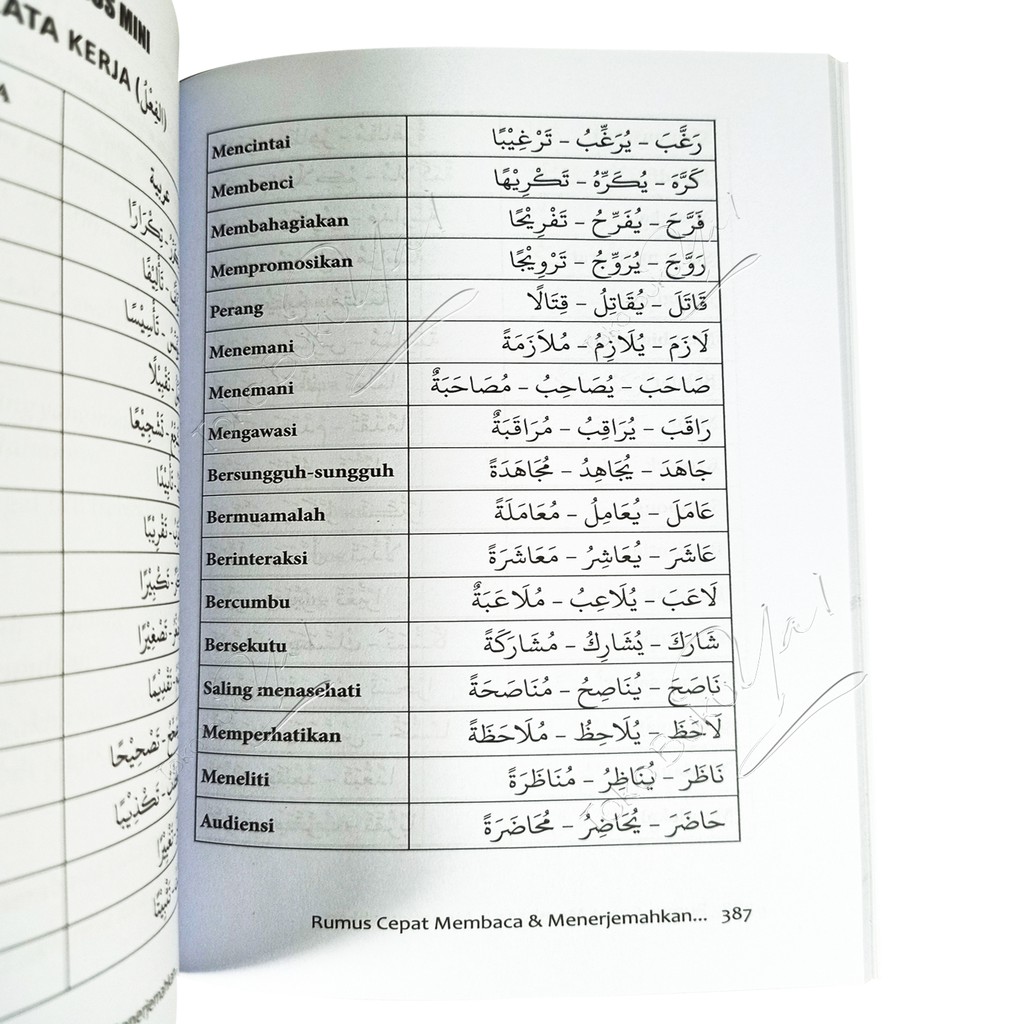 MINI
KATA KERJA (الفِعْلُ)
عربية
تِكْرَارًا
تَأْلِيْفًا
تَأْسِيْسًا
تَشْجِيْعًا
تَقْرِيْبًا
تَكْبِيْرًا
تَصْغِيْرًا
تَقْدِيْمًا
تَصْحِيْحًا
تَكْذِيْبًا
Mencintai رَغَّبَ – يُرَغِّبُ – تَرْغِيْبًا
Membenci كَرَّهَ – يُكَرِّهُ – تَكْرِيْهًا
Membahagiakan فَرَّحَ – يُفَرِّحُ – تَفْرِيْحًا
Mempromosikan رَوَّجَ – يُرَوِّجُ – تَرْوِيْجًا
Perang قَاتَلَ – يُقَاتِلُ – قِتَالًا
Menemani لَازَمَ – يُلَازِمُ – مُلاَزَمَةً
Menemani صَاحَبَ – يُصَاحِبُ – مُصَاحَبَةٌ
Mengawasi رَاقَبَ – يُرَاقِبُ – مُرَاقَبَةٌ
Bersungguh-sungguh جَاهَدَ – يُجَاهِدُ – مُجَاهَدَةً
Bermuamalah عَامَلَ – يُعَامِلُ – مُعَامَلَةً
Berinteraksi عَاشَرَ – يُعَاشِرُ – مَعَاشَرَةً
Bercumbu لَاعَبَ – يُلَاعِبُ – مُلَاعَبَةٌ
Bersekutu شَارَكَ – يُشَارِكُ – مُشَارَكَةً
Saling menasehati نَاصَحَ – يُنَاصِحُ – مُنَاصَحَةً
Memperhatikan لَاحَظَ – يُلَاحِظُ – مُلَاحَظَةً
Meneliti نَاظَرَ – يُنَاظِرُ – مُنَاظَرَةً
Audiensi حَاضَرَ – يُحَاضِرُ – مُحَاضَرَةً
Rumus Cepat Membaca & Menerjemahkan... 387